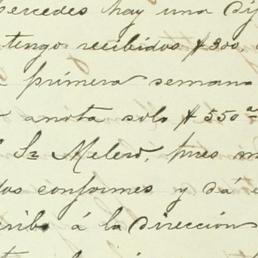 percedes hay una dif
tengo recibidos $300,
primera semana
anota solo $550
Sr Melero, pues
conformes y dá
á la dirección